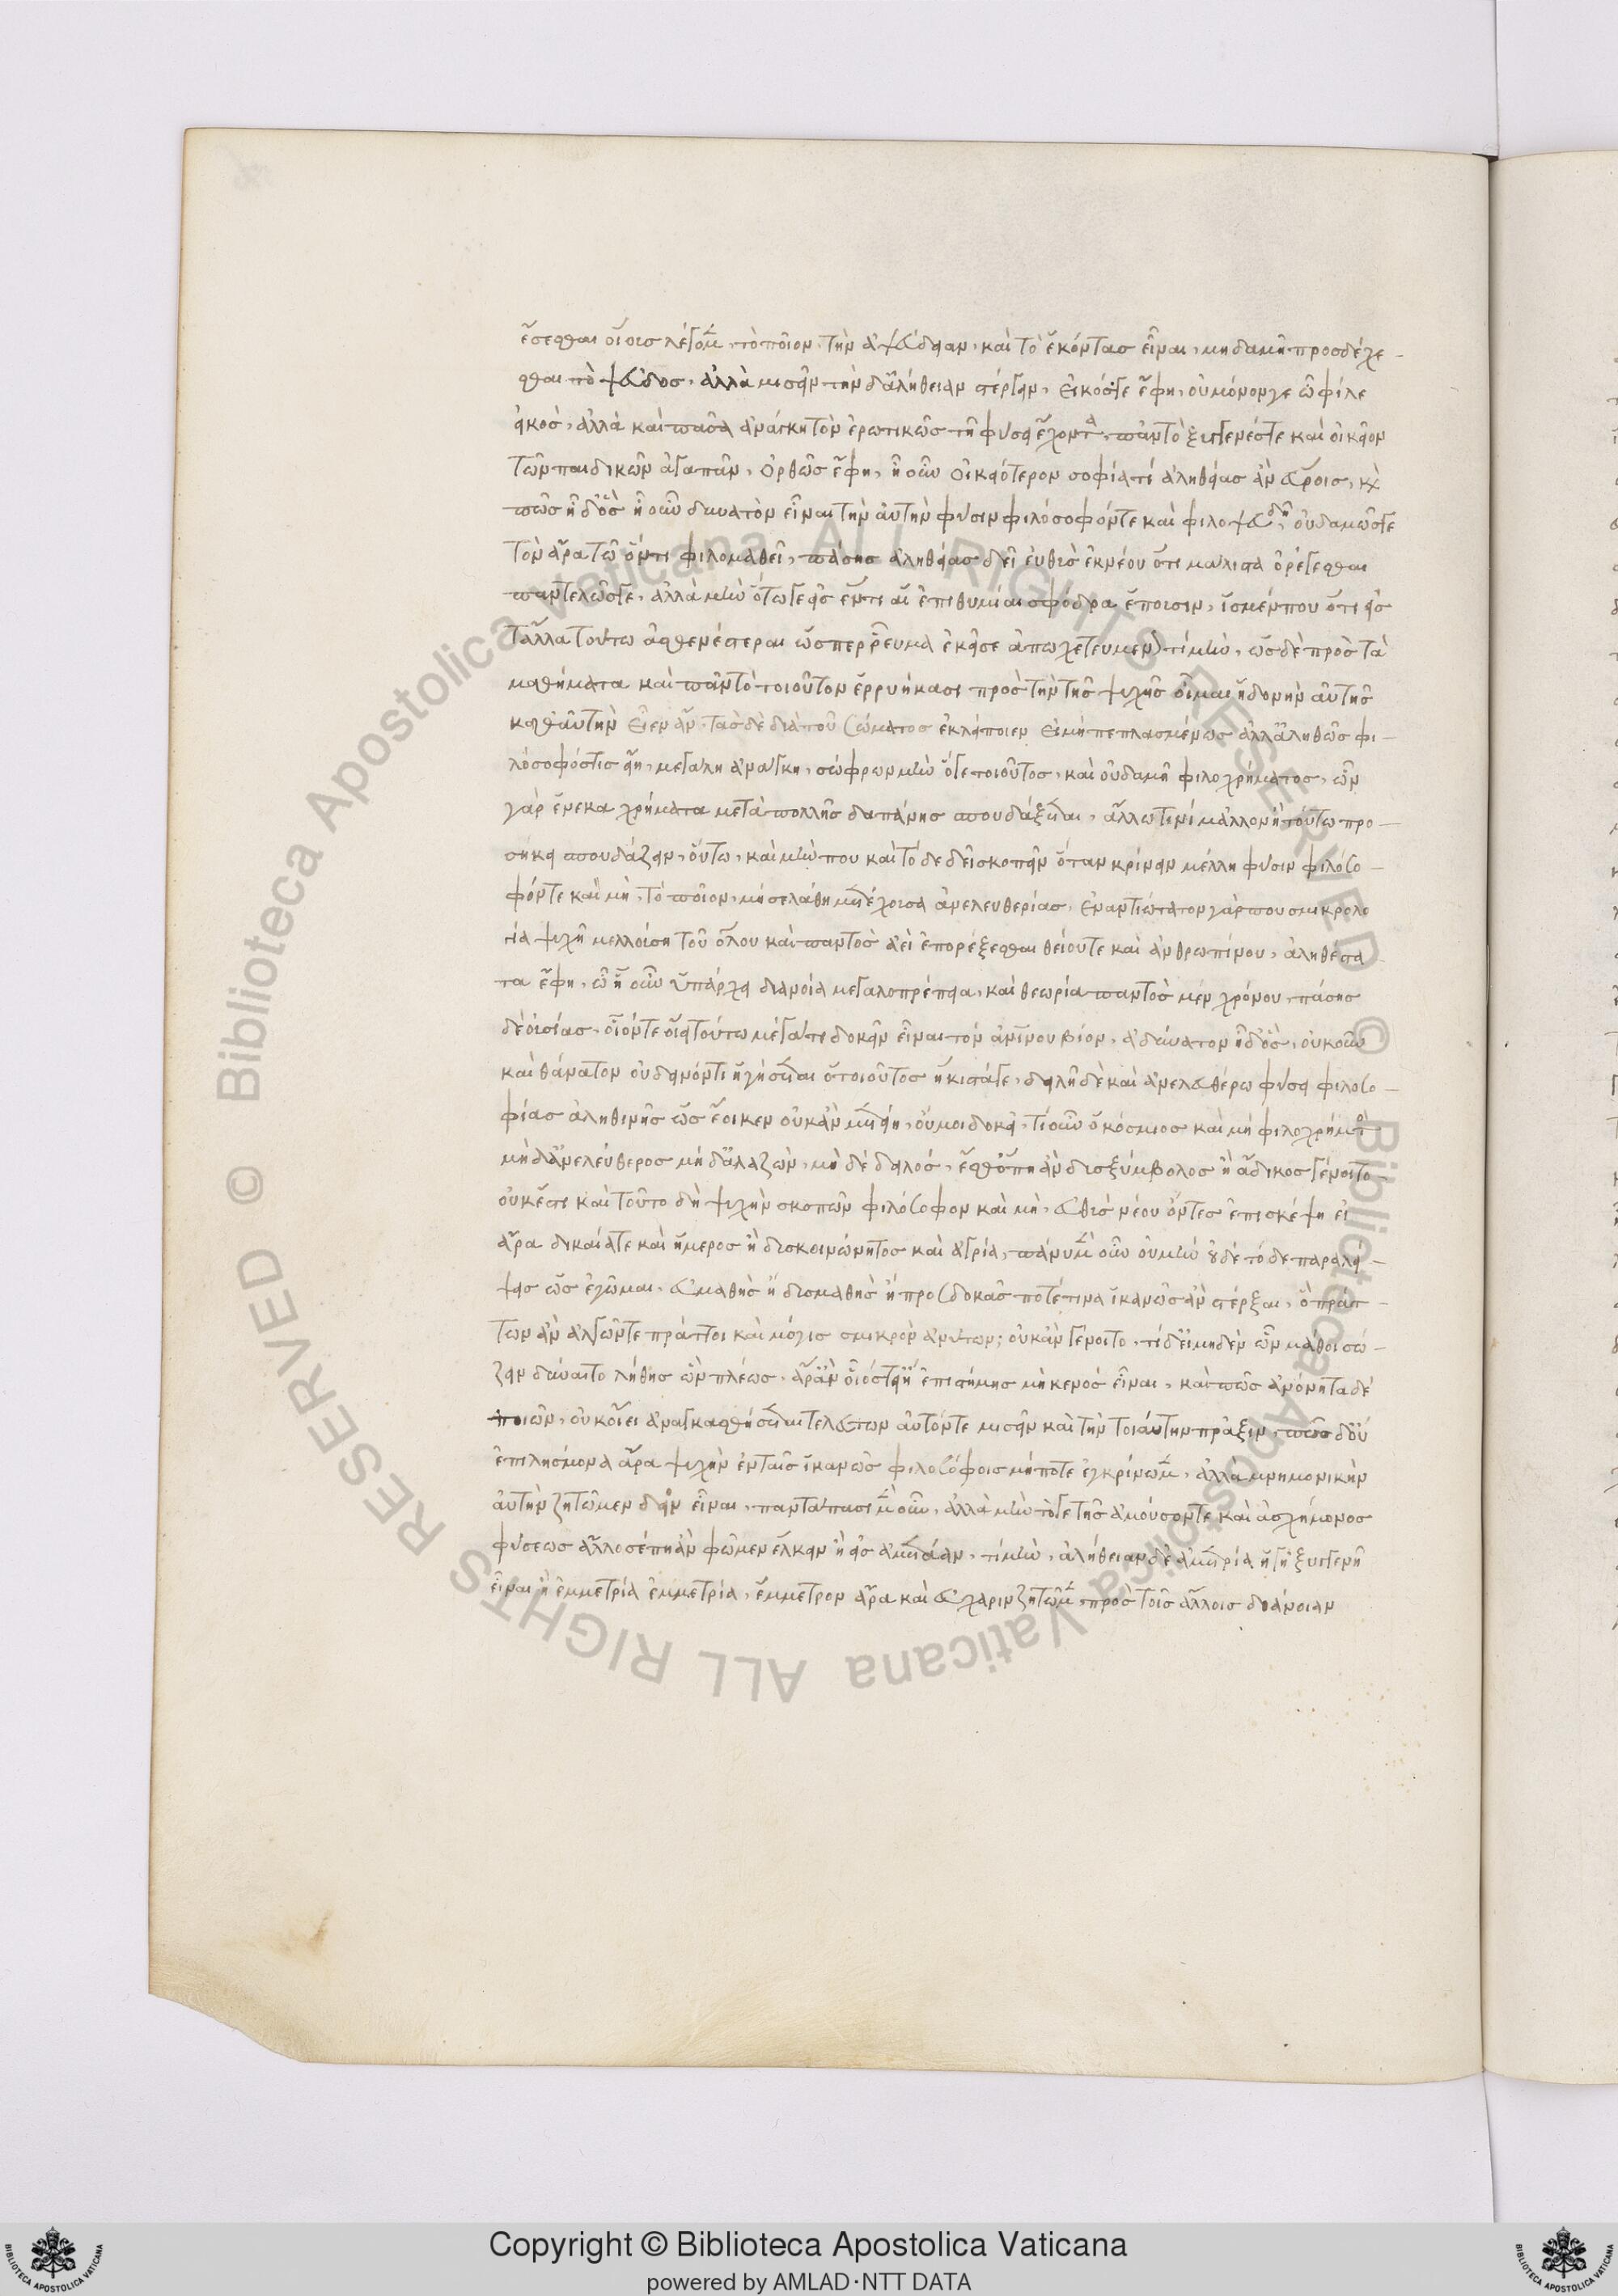 ἔσεσθαι οἵους λέγομεν, τὸ ποῖον, τὴν ἀψεύδειαν, καὶ τὸ ἑκόντας εἶναι, μηδαμῆ προσδέχε-
σθαι τὸ ψεῦδος, ἀλλὰ μισεῖν τὴν δ᾽ἀλήθειαν στέργειν, εἰκός γε ἔφη, οὐ μόνον γε ὦ φίλε
εἰκὸς, ἀλλὰ καὶ πᾶσα ἀνάγκη τὸν ἐρωτικῶς τῆ φύσει ἔχοντα, πᾶν τὸ ξυγγενές τε καὶ οἰκεῖον
τῶν παιδικῶν ἀγαπᾶν, ὀρθῶς ἔφη, ἦ οὖν οἰκειότερον σοφία τί ἀληθείας ἂν εὕροις, καὶ
πῶς ἦ δ᾽ὃς ἦ οὖν δυνατὸν εἶναι τὴν αὐτὴν φύσιν φιλόσοφόν τε καὶ φιλοψευδῆ, οὐδαμῶς γε
τὸν ἄρα τῶ ὄντι φιλομαθεῖ, πάσης ἀληθείας δεῖ εὐθὺς ἐκ νέου ὅτι μάλιστα ὀρέγεσθαι
παντελῶς γε, ἀλλὰ μὴν ὅτω γε εἰς ἕν τι αἱ ἐπιθυμίαι σφόδρα ῥέπουσιν, ἴσμεν που ὅτι εἰς
τἄλλα τούτω ἀσθενέστεραι ὥσπερ ῥεῦμα ἐκεῖσε ἀπωχετευμένον τί μὴν, ὧ δὲ πρὸς τὰ
μαθήματα καὶ πᾶν τὸ τοιοῦτον ἐρρυήκασι πρὸς τὴν τῆς ψυχῆς οἶμαι ἡδονὴν αὐτῆς
καθ᾽αὑτὴν εἶεν ἂν, τὰς δὲ διὰ τοῦ σώματος ἐκλείποιεν εἰ μὴ πεπλασμένως ἀλλ᾽ἀληθῶς φι-
λόσοφός τις εἴη, μεγάλη ἀνάγκη, σώφρων μὴν ὅ γε τοιοῦτος, καὶ οὐδαμῆ φιλοχρήματος, ὧν
γὰρ ἕνεκα χρήματα μετὰ πολλῆς δαπάνης σπουδάζεται, ἄλλω τινὶ μᾶλλον ἢ τούτω προ-
σήκει σπουδάζειν, οὕτω, καὶ μήν που καὶ τόδε δεῖ σκοπεῖν ὅταν κρίνειν μέλλη φύσιν φιλόσο-
φόν τε καὶ μὴ, τὸ ποῖον, μή σε λάθη μετέχουσα ἀνελευθερίας, ἐναντιώτατον γάρ που σμικρολο
γία ψυχῆ μελλούση τοῦ ὅλου καὶ παντὸς ἀεὶ ἐπορέξεσθαι θείου τε καὶ ἀνθρωπίνου, ἀληθέστα
τα ἔφη, ὧ ἦ οὖν ὑπάρχει διανοία μεγαλοπρέπεια, καὶ θεωρία παντὸς μὲν χρόνου, πάσης
δὲ οὐσίας, οἷόν τε οἴει τούτω μέγα τι δοκεῖν εἶναι τὸν ἀνθρώπινον βίον, ἀδύνατον ἦ δ᾽ὃς, οὐκοῦν
καὶ θάνατον οὐ δεινόν τι ἡγήσεται ὁ τοιοῦτος ἥκιστά γε, δειλῆ δὲ καὶ ἀνελευθέρω φύσει φιλοσο-
φίας ἀληθινῆς ὡς ἔοικεν οὐκ ἂν μετείη, οὔ μοι δοκεῖ, τί οὖν ὁ κόσμιος καὶ μὴ φιλοχρήματος
μὴ δ᾽ἀνελεύθερος μὴ δ᾽ἀλαζὼν, μὴ δὲ δειλὸς, ἔσθ᾽ὅπη ἂν δυσξύμβολος ἢ ἄδικος γένοιτο
οὐκ ἔστι καὶ τοῦτο δὴ ψυχὴν σκοπῶν φιλόσοφον καὶ μὴ, εὐθὺς νέου ὄντος ἐπισκέψη εἰ
ἄρα δικαία τε καὶ ἥμερος ἢ δυσκοινώνητος καὶ ἀγρία, πάνυ μὲν οὖν οὐ μὴν οὐδὲ τόδε παραλεί-
ψεις ὡς ἐγῶμαι, εὐμαθὴς ἢ δυσμαθὴς ἢ προσδοκᾶς ποτέ τινα ἱκανῶς ἂν στέρξαι, ὃ πράτ-
των ἂν ἀλγῶν τε πράττοι καὶ μόγις σμικρὸν ἀνύτων; οὐκ ἂν γένοιτο, τί δ᾽εἰ μηδὲν ὧν μάθοι σώ-
ζειν δύναιτο λήθης ὢν πλέως, ἆρ᾽ἂν οἷός τ᾽εἴη ἐπιστήμης μὴ κενὸς εἶναι, καὶ πῶς ἀνόνητα δὲ
πονῶν, οὐκ οἴει ἀναγκασθήσεται τελευτῶν αὑτόν τε μισεῖν καὶ τὴν τοιαύτην πρᾶξιν, πῶς δ᾽οὔ
ἐπιλήσμονα ἄρα ψυχὴν ἐν ταῖς ἱκανῶς φιλοσόφοις μήποτε ἐγκρίνωμεν, ἀλλὰ μνημονικὴν
αὐτὴν ζητῶμεν δεῖν εἶναι, παντάπασι μὲν οὖν, ἀλλὰ μὴν τό γε τῆς ἀμούσου τε καὶ ἀσχήμονος
φύσεως ἄλλοσέ πη ἂν φῶμεν ἕλκειν ἢ εἰς ἀμετρίαν, τί μὴν, ἀλήθειαν δὲ ἀμετρία ἡγῆ ξυγγενῆ
εἶναι ἢ ἐμμετρία ἐμμετρία, ἔμμετρον ἄρα καὶ εὔχαριν ζητῶμεν πρὸς τοῖς ἄλλοις διάνοιαν
Copyright © Biblioteca Apostolica Vaticana
powered by AMLAD·NTT DATA